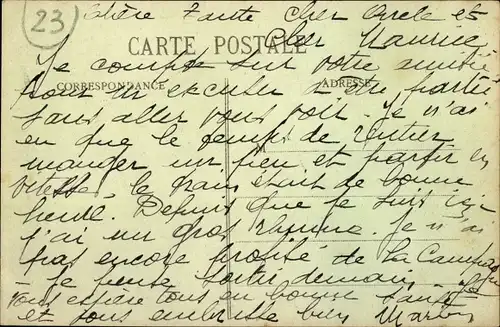 23
Chère Tante Cher Oncle et
Cher Maurice
CARTE POSTALE
CORRESPONDANCE
ADRESSE
Je compte sur votre amitié
pour m'excuser d'être partie
sans aller vous voir. Je n'ai
eu que le temps de rentrer
manger un peu et partir en
vitesse, le train était de bonne
heure. Depuis que je suis ici
j'ai un gros rhume. Je n'ai
pas encore profité de la Campagne
- je pense sortir demain. Je
vous espère tous en bonne santé
et vous embrasse bien